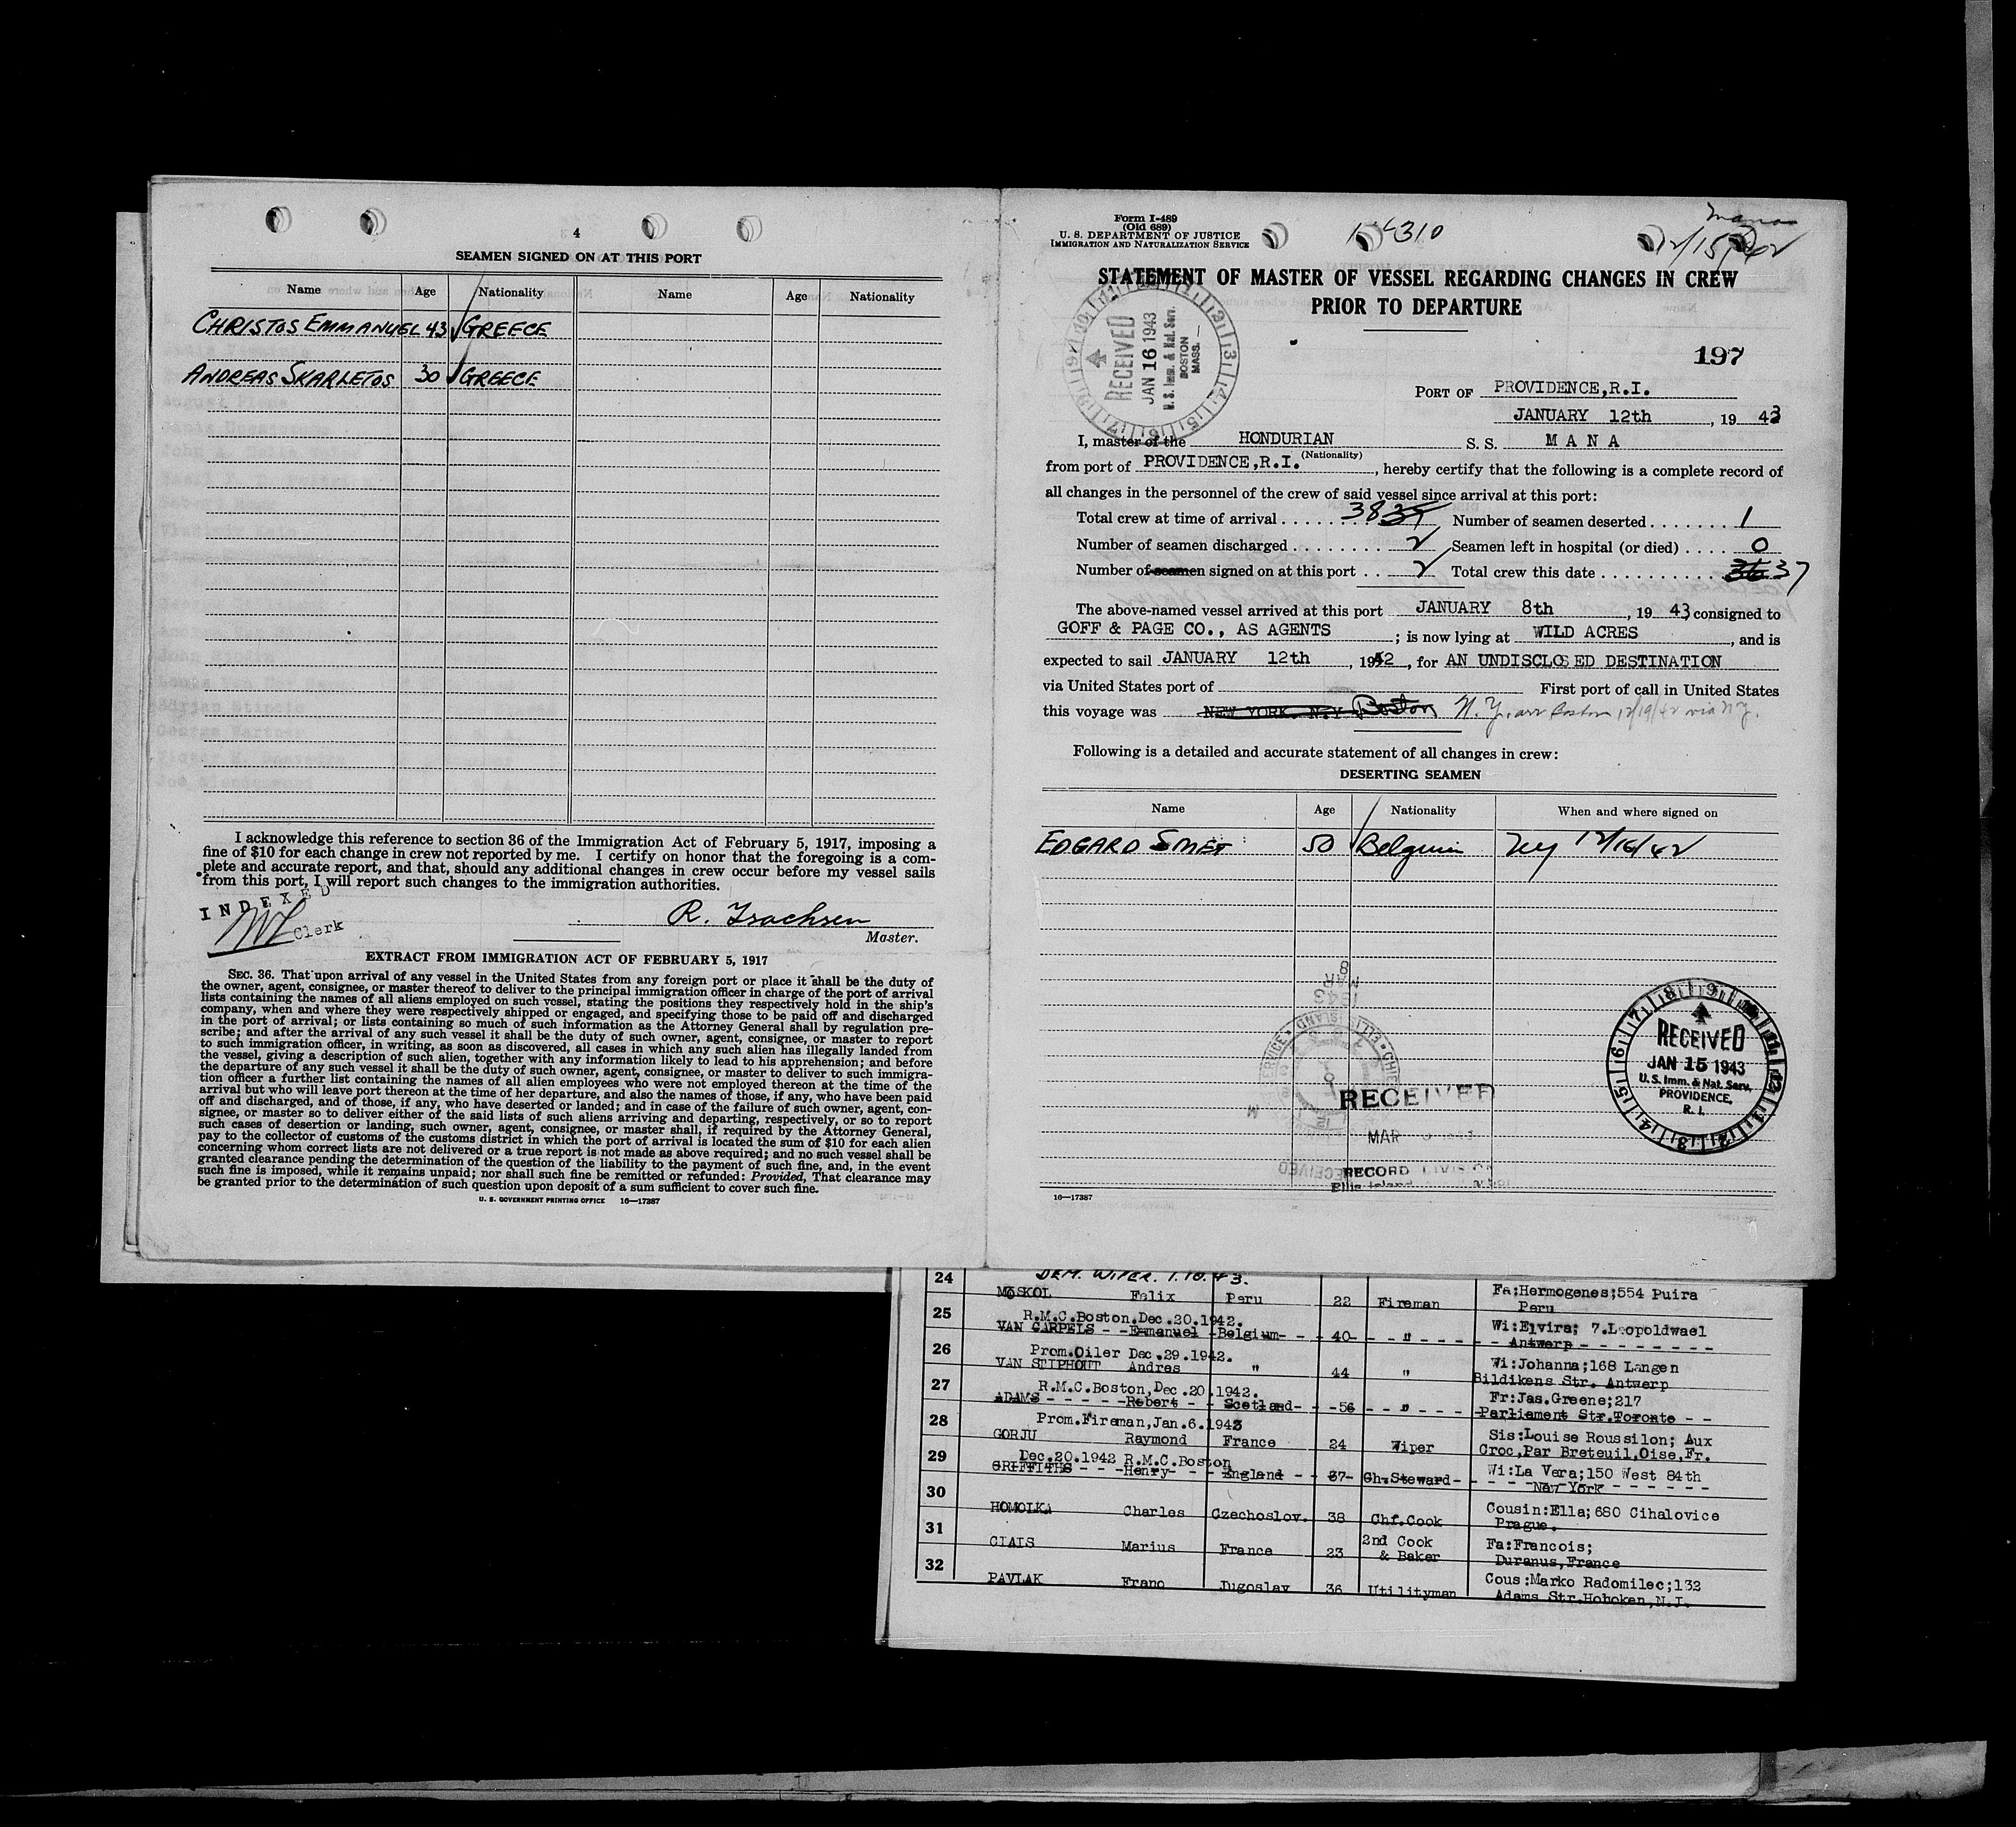 4
SEAMEN SIGNED ON AT THIS PORT
Name Age Nationality Name Age Nationality
CHRISTOS EMMANUEL 43 GREECE
ANDREAS SKARLETOS 30 GREECE
I acknowledge this reference to section 36 of the Immigration Act of February 5, 1917, imposing a
fine of $10 for each change in crew not reported by me. I certify on honor that the foregoing is a com-
plete and accurate report, and that, should any additional changes in crew occur before my vessel sails
from this port, I will report such changes to the immigration authorities.
INDEXED
Clerk
R. Isachsen
Master.
EXTRACT FROM IMMIGRATION ACT OF FEBRUARY 5, 1917
SEC. 36. That upon arrival of any vessel in the United States from any foreign port or place it shall be the duty of
the owner, agent, consignee, or master thereof to deliver to the principal immigration officer in charge of the port of arrival
lists containing the names of all aliens employed on such vessel, stating the positions they respectively hold in the ship's
company, when and where they were respectively shipped or engaged, and specifying those to be paid off and discharged
in the port of arrival; or lists containing so much of such information as the Attorney General shall by regulation pre-
scribe; and after the arrival of any such vessel it shall be the duty of such owner, agent, consignee, or master to report
to such immigration officer, in writing, as soon as discovered, all cases in which any such alien has illegally landed from
the vessel, giving a description of such alien, together with any information likely to lead to his apprehension; and before
the departure of any such vessel it shall be the duty of such owner, agent, consignee, or master to deliver to such immigra-
tion officer a further list containing the names of all alien employees who were not employed thereon at the time of the
arrival but who will leave port thereon at the time of her departure, and also the names of those, if any, who have been paid
off and discharged, and of those, if any, who have deserted or landed; and in case of the failure of such owner, agent, con-
signee, or master so to deliver either of the said lists of such aliens arriving and departing, respectively, or so to report
such cases of desertion or landing, such owner, agent, consignee, or master shall, if required by the Attorney General,
pay to the collector of customs of the customs district in which the port of arrival is located the sum of $10 for each alien
concerning whom correct lists are not delivered or a true report is not made as above required; and no such vessel shall be
granted clearance pending the determination of the question of the liability to the payment of such fine, and, in the event
such fine is imposed, while it remains unpaid; nor shall such fine be remitted or refunded: Provided, That clearance may
be granted prior to the determination of such question upon deposit of a sum sufficient to cover such fine.
U. S. GOVERNMENT PRINTING OFFICE 16—17387
Form I-489
(Old 689)
U. S. DEPARTMENT OF JUSTICE
IMMIGRATION AND NATURALIZATION SERVICE
Mana
12/15/42
STATEMENT OF MASTER OF VESSEL REGARDING CHANGES IN CREW
PRIOR TO DEPARTURE
RECEIVED
JAN 16 1943
U. S. Imm. & Nat. Serv.
BOSTON
MASS.
197
PORT OF PROVIDENCE,R.I.
JANUARY 12th, 1943
I, master of the HONDURIAN S. S. MANA
(Nationality)
from port of PROVIDENCE,R.I., hereby certify that the following is a complete record of
all changes in the personnel of the crew of said vessel since arrival at this port:
Total crew at time of arrival ..... 38 Number of seamen deserted ....... 1
Number of seamen discharged ........ 2 Seamen left in hospital (or died) .... 0
Number of seamen signed on at this port .. 2 Total crew this date ........... 36 37
The above-named vessel arrived at this port JANUARY 8th, 1943 consigned to
GOFF & PAGE CO., AS AGENTS; is now lying at WILD ACRES, and is
expected to sail JANUARY 12th, 1942, for AN UNDISCLOSED DESTINATION
via United States port of First port of call in United States
this voyage was NEW YORK N.Y Boston N.Y. arr Boston 12/19/42 via N.Y.
Following is a detailed and accurate statement of all changes in crew:
DESERTING SEAMEN
Name Age Nationality When and where signed on
EDGARD SMET 50 Belgium NY 12/16/42
MAR 8
1943
RECEIVED
MAR
RECORD DIVISION
Ellis Island
RECEIVED
JAN 15 1943
U.S. Imm. & Nat. Serv.
PROVIDENCE,
R. I.
16—17387
24 DEM. WIPER. 1.10.43.
MOSKOL Felix Peru 22 Fireman Fa:Hermogenes;554 Puira
Peru
25 R.M.C.Boston.Dec.20.1942.
VAN GARPELS Emanuel Belgium 40 " Wi:Elvira; 7.Leopoldwael
Antwerp
26 Prom.Oiler Dec.29.1942.
VAN STIPHOUT Andres " 44 " Wi:Johanna;168 Langen
Bildikens Str. Antwerp
27 R.M.C.Boston,Dec.20.1942.
ADAMS Robert Scotland 56 " Fr:Jas.Greene;217
Parliament Str.Toronto
28 Prom.Fireman,Jan.6.1943
GORJU Raymond France 24 Wiper Sis:Louise Roussilon; Aux
Croc,Par Breteuil,Oise,Fr.
29 Dec.20.1942 R.M.C.Boston
GRIFFITHS Henry England 37 Ch.Steward Wi:La Vera;150 West 84th
New York
30
HOMOLKA Charles Czechoslov. 38 Chf.Cook Cousin:Ella;680 Cihalovice
Prague.
31
CIAIS Marius France 23 2nd Cook & Baker Fa:Francois;
Duranus,France
32
PAVLAK Frano Jugoslav 36 Utilityman Cous:Marko Radomilec;132
Adams Str.Hoboken,N.J.